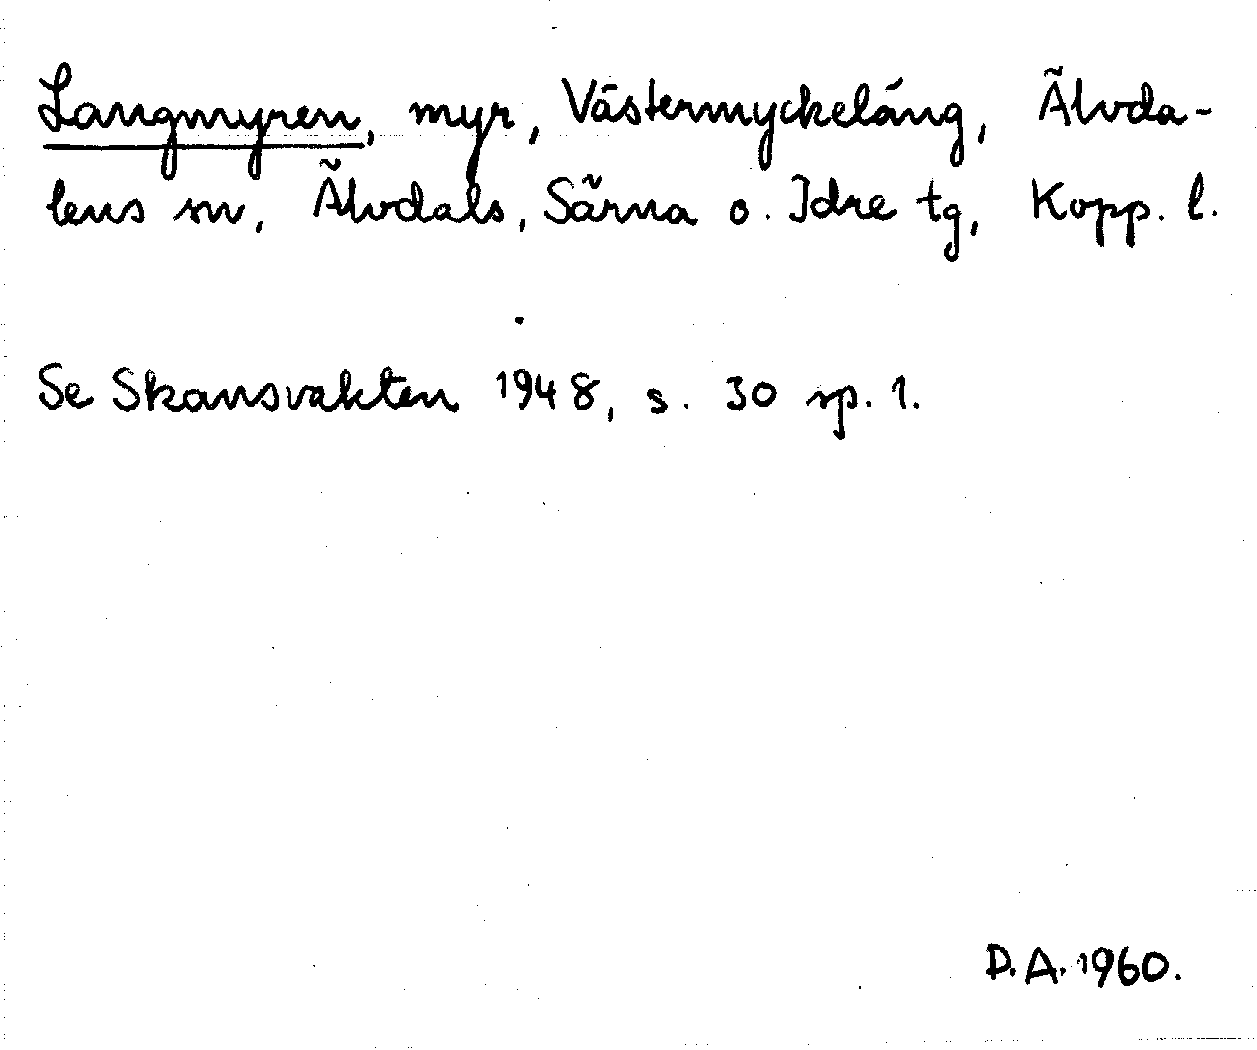 Langmyren, myr, Västermyckeläng, Älvda-
lens sn, Älvdals, Särna o. Idre tg, Kopp. l.
Se Skansvakten 1948, s. 30 sp. 1.
D.A. 1960.